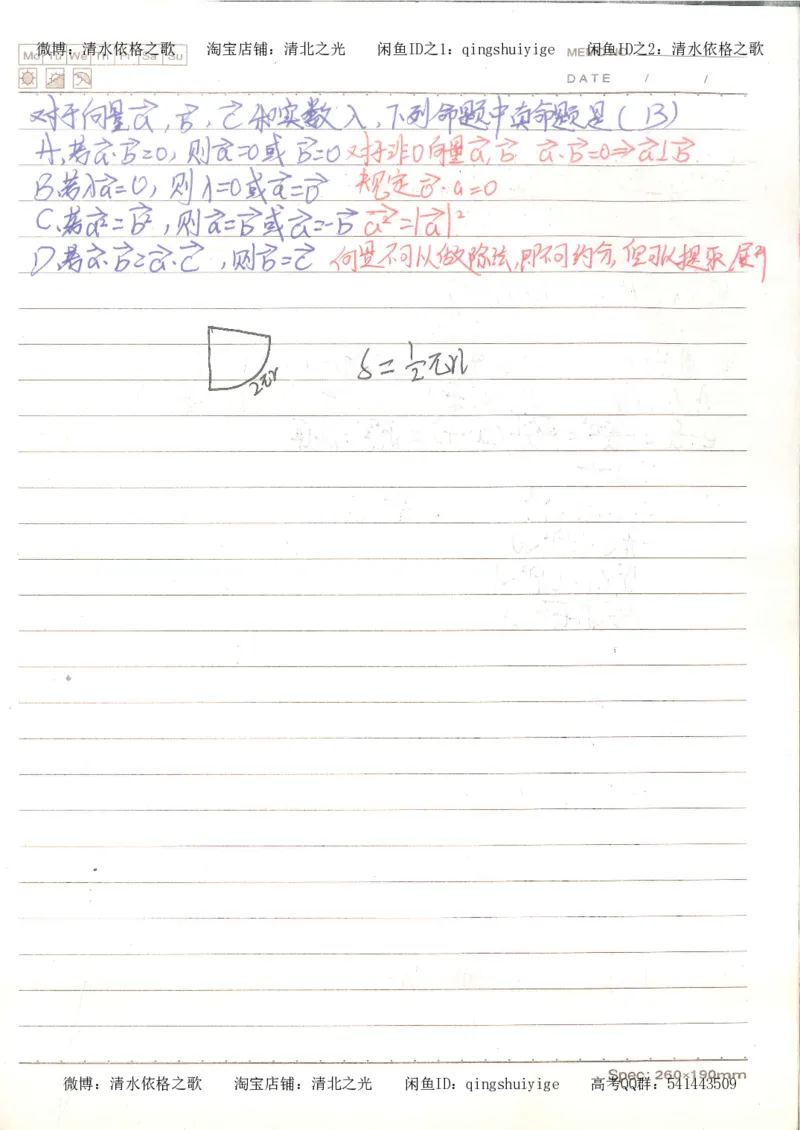 微博：清水依格之歌 淘宝店铺：清北之光 闲鱼ID之1：qingshuiyige 闲鱼ID之2：清水依格之歌
Mo Tu We Th Fr Sa Su
DATE / /
对于向量a⃗，b⃗，c⃗和实数λ，下列命题中真命题是（B）
A.若a⃗·b⃗=0，则a⃗=0或b⃗=0 对于非0向量a⃗,b⃗ a⃗·b⃗=0⇒a⃗⊥b⃗
B.若λa⃗=0，则λ=0或a⃗=0⃗ 规定0⃗·a=0
C.若a⃗²=b⃗²，则a⃗=b⃗或a⃗=-b⃗ a⃗²=|a⃗|²
D.若a⃗·b⃗=a⃗·c⃗，则b⃗=c⃗ 向量不可以做除法,即不可约分,但可以提取,展开
2πr
S=½πrl
Spec: 260×190mm
微博：清水依格之歌 淘宝店铺：清北之光 闲鱼ID：qingshuiyige 高考QQ群：541443509